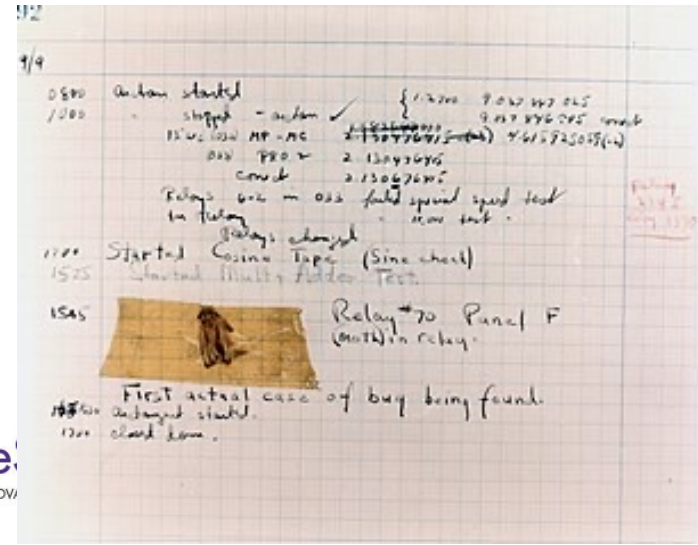 92
9/9
0800 antan started
1000 " stopped - antan ✓ { 1.2700 9.037 847 025
9.037 846 995 correct
13"uc (032) MP - MC 2.130476415 4.615925059(-2)
033 PRO 2 2.130476415
correct 2.130676415
Relays 6-2 in 033 failed special speed test
in relay
Relays changed
1700 Started Cosine Tape (Sine check)
1525 Started Multy Adder Test.
1545 Relay #70 Panel F
(moth) in relay.
First actual case of bug being found.
antangent started.
1700 closed down.